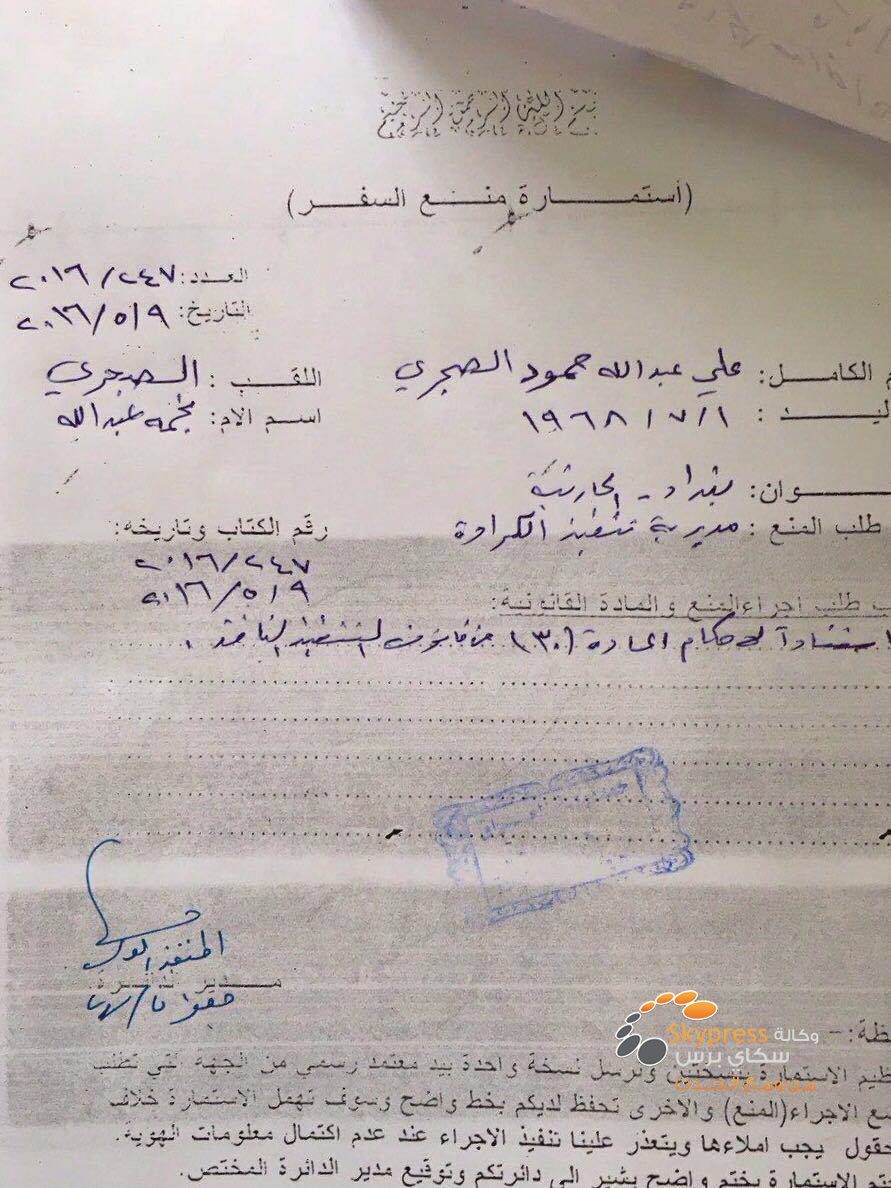 بسم الله الرحمن الرحيم
(أستمارة منع السفر)
العدد: ٢٠١٦/٢٤٧
التاريخ: ٢٠١٦/٥/٩
م الكامل: علي عبدالله حمود الصجري
اللقب: الصجري
ليد: ١٩٦٨/٧/١
اسم الام: نجمه عبدالله
وان: بغداد - الحارثية
طلب المنع: مديرية تنفيذ الكرادة
رقم الكتاب وتاريخه:
٢٠١٦/٢٤٧
٢٠١٦/٥/٩
ب طلب اجراء المنع والمادة القانونية:
استناداً لاحكام المادة (٣٠) من قانون التنفيذ النافذ.
المنفذ العدلي
مدير الدائرة
وكالة Skypress
سكاي برس
من وسع الحدث
ظة:-
ظيم الاستمارة بنسختين وترسل نسخة واحدة بيد معتمد رسمي من الجهة التي تطلب
مع الاجراء(المنع) والاخرى تحفظ لديكم بخط واضح وسوف تهمل الاستمارة خلاف
حقول يجب املاءها ويتعذر علينا تنفيذ الاجراء عند عدم اكتمال معلومات الهوية.
تم الاستمارة بختم واضح يشير الى دائرتكم وتوقيع مدير الدائرة المختص.